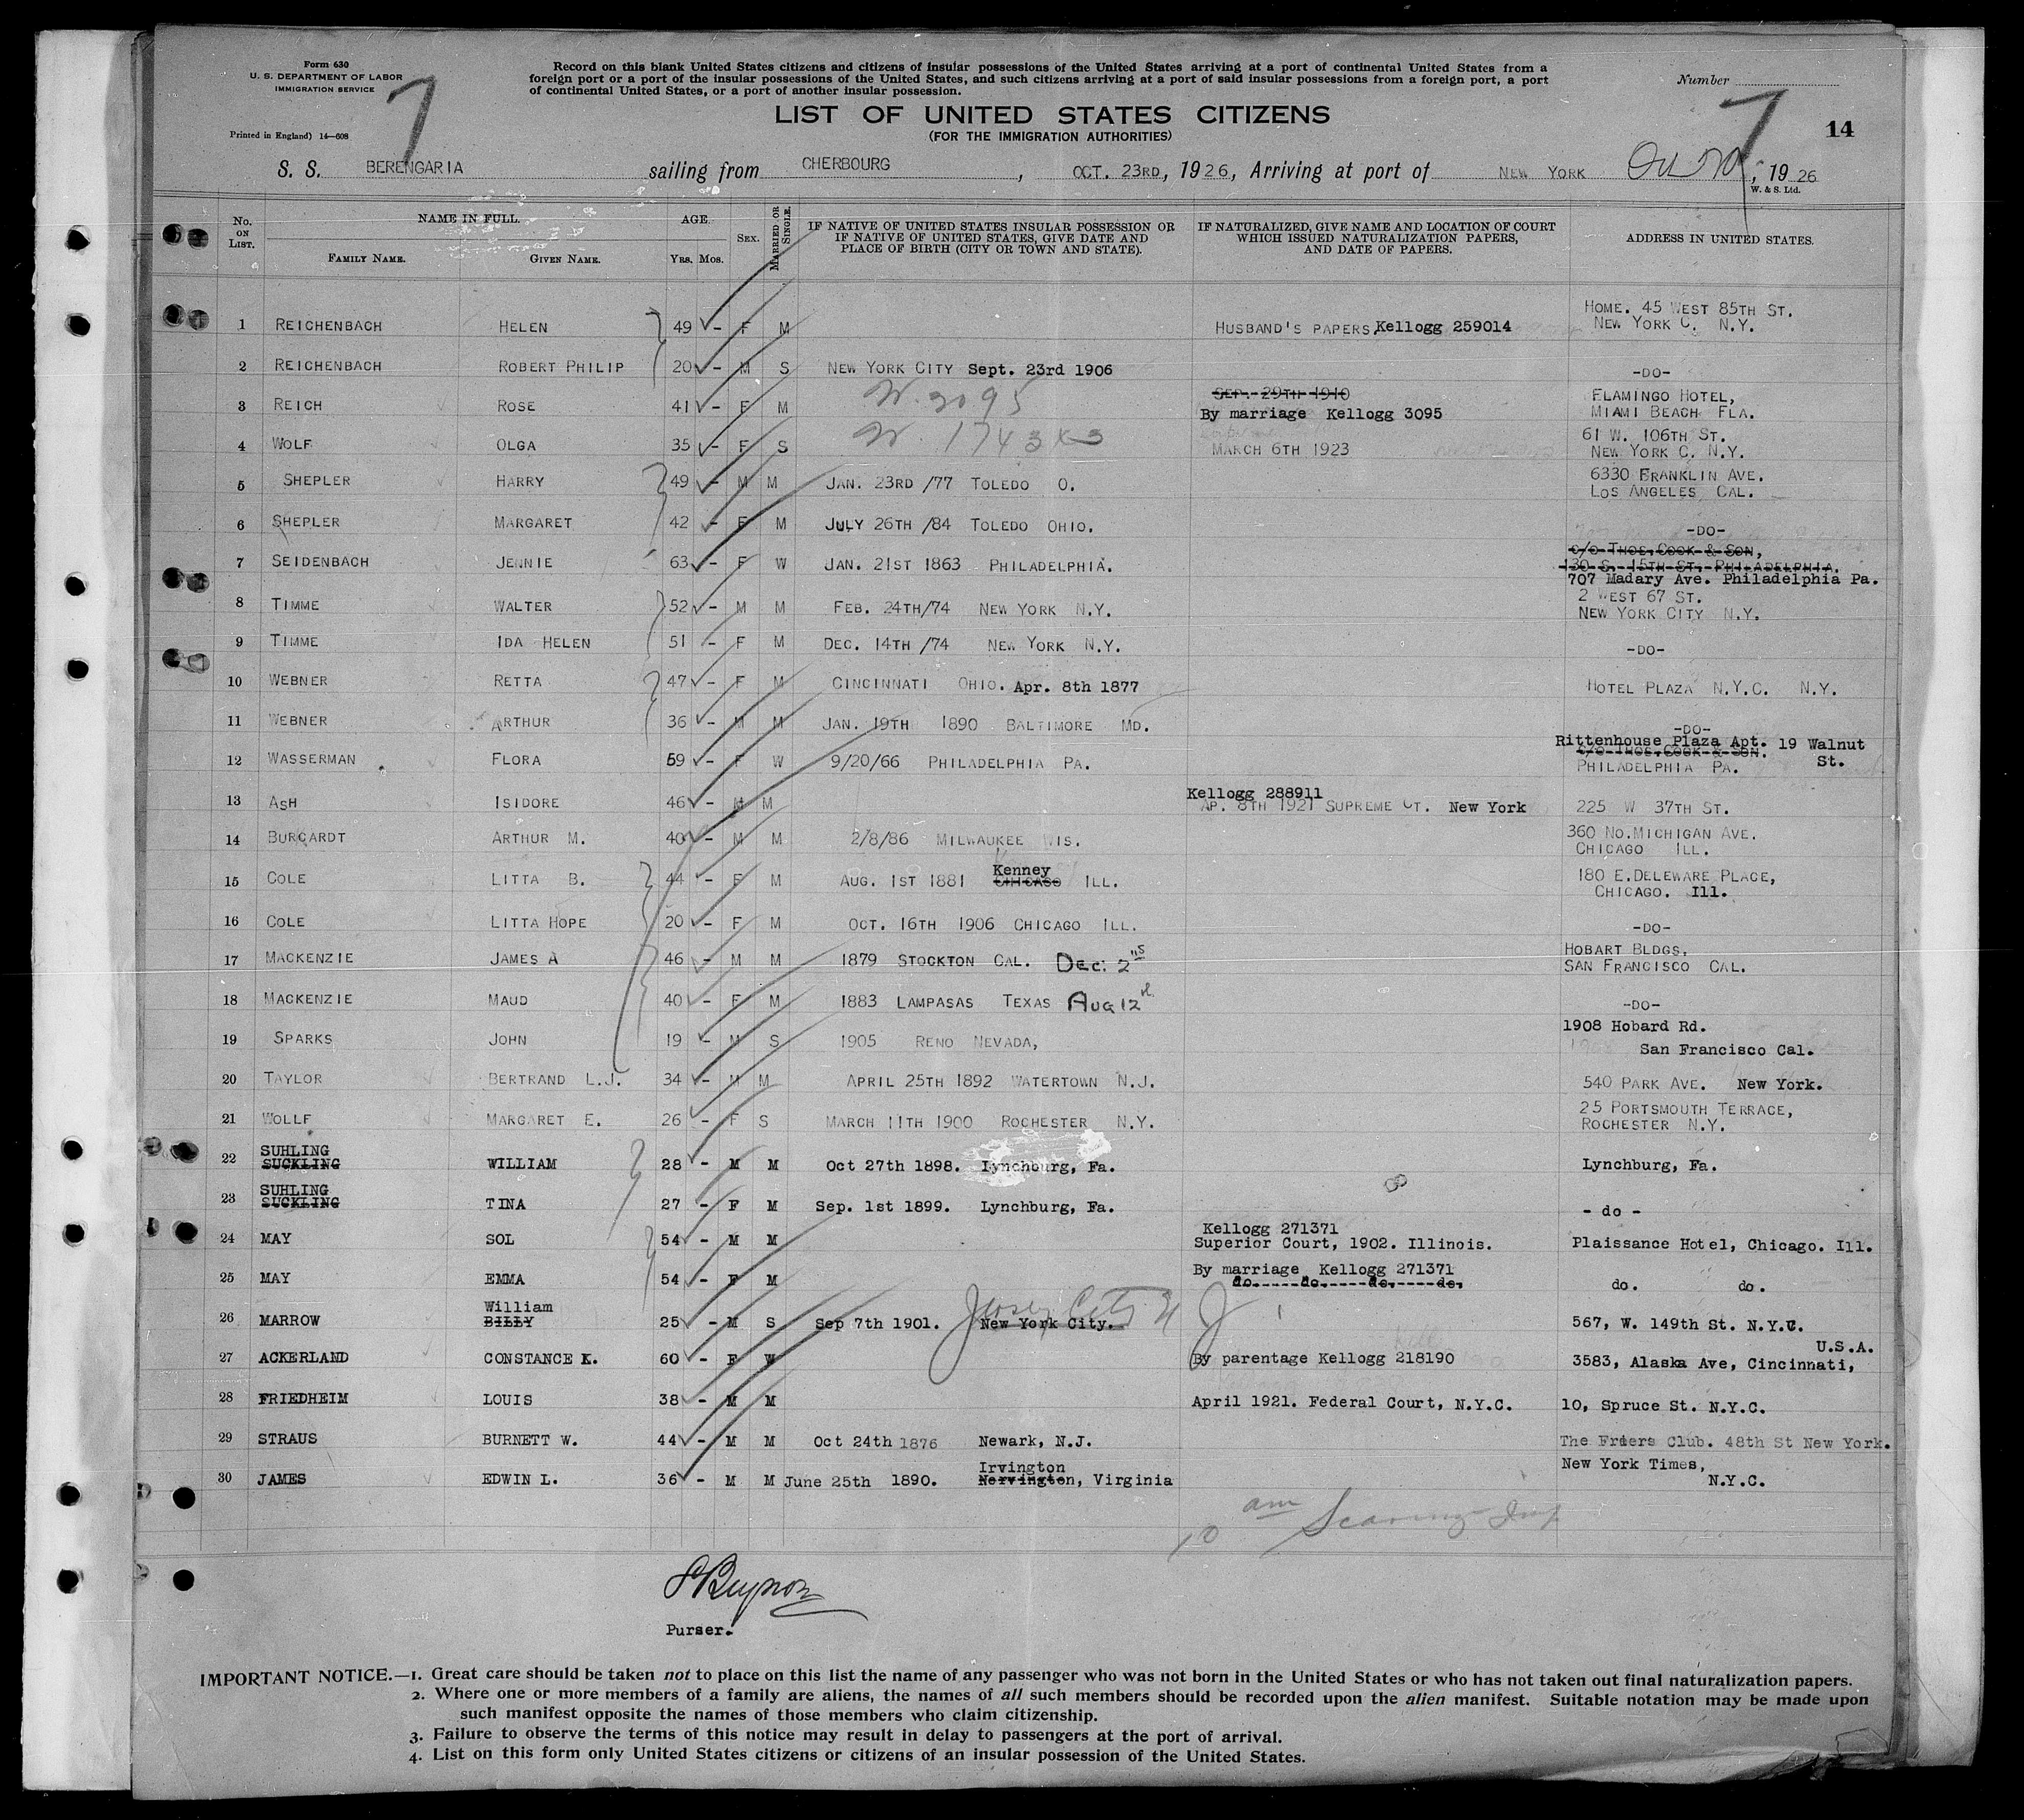 Form 630
U. S. DEPARTMENT OF LABOR
IMMIGRATION SERVICE
Printed in England) 14—608
7
Record on this blank United States citizens and citizens of insular possessions of the United States arriving at a port of continental United States from a
foreign port or a port of the insular possessions of the United States, and such citizens arriving at a port of said insular possessions from a foreign port, a port
of continental United States, or a port of another insular possession.
Number
7
14
LIST OF UNITED STATES CITIZENS
(FOR THE IMMIGRATION AUTHORITIES)
S. S. BERENGARIA sailing from CHERBOURG, OCT. 23RD, 1926, Arriving at port of NEW YORK, 1926
W. & S. Ltd.
No. ON LIST. NAME IN FULL. FAMILY NAME. GIVEN NAME. AGE. YRS. MOS. SEX. MARRIED OR SINGLE. IF NATIVE OF UNITED STATES INSULAR POSSESSION OR IF NATIVE OF UNITED STATES, GIVE DATE AND PLACE OF BIRTH (CITY OR TOWN AND STATE). IF NATURALIZED, GIVE NAME AND LOCATION OF COURT WHICH ISSUED NATURALIZATION PAPERS, AND DATE OF PAPERS. ADDRESS IN UNITED STATES.
1 REICHENBACH HELEN 49 - F M HUSBAND'S PAPERS, Kellogg 259014 HOME. 45 WEST 85TH ST. NEW YORK C. N.Y.
2 REICHENBACH ROBERT PHILIP 20 - M S NEW YORK CITY Sept. 23rd 1906 -DO-
3 REICH ROSE 41 - F M N. 3095 SEP. 29TH 1910 By marriage Kellogg 3095 FLAMINGO HOTEL, MIAMI BEACH FLA.
4 WOLF OLGA 35 - F S MARCH 6TH 1923 61 W. 106TH ST. NEW YORK C. N.Y.
5 SHEPLER HARRY 49 - M M JAN. 23RD /77 TOLEDO O. 6330 FRANKLIN AVE. LOS ANGELES CAL.
6 SHEPLER MARGARET 42 - F M JULY 26TH /84 TOLEDO OHIO. -DO-
7 SEIDENBACH JENNIE 63 - F W JAN. 21ST 1863 PHILADELPHIA. c/o THOS, COOK & SON, 130 S. 15TH ST, PHILADELPHIA. 707 Madary Ave. Philadelphia Pa.
8 TIMME WALTER 52 - M M FEB. 24TH/74 NEW YORK N.Y. 2 WEST 67 ST. NEW YORK CITY N.Y.
9 TIMME IDA HELEN 51 - F M DEC. 14TH /74 NEW YORK N.Y. -DO-
10 WEBNER RETTA 47 - F M CINCINNATI OHIO. Apr. 8th 1877 HOTEL PLAZA N.Y.C. N.Y.
11 WEBNER ARTHUR 36 - M M JAN. 19TH 1890 BALTIMORE MD. -DO-
12 WASSERMAN FLORA 59 - F W 9/20/66 PHILADELPHIA PA. Rittenhouse Plaza Apt. 19 Walnut St. c/o THOS, COOK & SON. PHILADELPHIA PA.
13 ASH ISIDORE 46 - M M Kellogg 288911 AP. 8TH 1921 SUPREME CT. New York 225 W 37TH ST.
14 BURGARDT ARTHUR M. 40 - M M 2/8/86 MILWAUKEE WIS. 360 NO. MICHIGAN AVE. CHICAGO ILL.
15 COLE LITTA B. 44 - F M AUG. 1ST 1881 Kenney CHICAGO ILL. 180 E. DELEWARE PLACE, CHICAGO. Ill.
16 COLE LITTA HOPE 20 - F M OCT. 16TH 1906 CHICAGO ILL. -DO-
17 MACKENZIE JAMES A 46 - M M 1879 STOCKTON CAL. Dec. 2 HOBART BLDGS, SAN FRANCISCO CAL.
18 MACKENZIE MAUD 40 - F M 1883 LAMPASAS TEXAS Aug 12 -DO-
19 SPARKS JOHN 19 - M S 1905 RENO NEVADA, 1908 Hobard Rd. San Francisco Cal.
20 TAYLOR BERTRAND L.J. 34 - M M APRIL 25TH 1892 WATERTOWN N.J. 540 PARK AVE. New York.
21 WOLLF MARGARET E. 26 - F S MARCH 11TH 1900 ROCHESTER N.Y. 25 PORTSMOUTH TERRACE, ROCHESTER N.Y.
22 SUHLING SUCKLING WILLIAM 28 - M M Oct 27th 1898. Lynchburg, Fa. Lynchburg, Fa.
23 SUHLING SUCKLING TINA 27 - F M Sep. 1st 1899. Lynchburg, Fa. - do -
24 MAY SOL 54 - M M Kellogg 271371 Superior Court, 1902. Illinois. Plaissance Hotel, Chicago. Ill.
25 MAY EMMA 54 - F M By marriage Kellogg 271371 do.-----do.-----do.-----do. do. do.
26 MARROW William BILLY 25 - M S Sep 7th 1901. New York City. Jersey City N J 567, W. 149th St. N.Y.C.
27 ACKERLAND CONSTANCE K. 60 - F W By parentage Kellogg 218190 U.S.A. 3583, Alaska Ave, Cincinnati,
28 FRIEDHEIM LOUIS 38 - M M April 1921. Federal Court, N.Y.C. 10, Spruce St. N.Y.C.
29 STRAUS BURNETT W. 44 - M M Oct 24th 1876 Newark, N.J. The Friers Club. 48th St New York.
30 JAMES EDWIN L. 36 - M M June 25th 1890. Irvington Nervington, Virginia New York Times, N.Y.C.
10 am
Purser.
IMPORTANT NOTICE.—1. Great care should be taken not to place on this list the name of any passenger who was not born in the United States or who has not taken out final naturalization papers.
2. Where one or more members of a family are aliens, the names of all such members should be recorded upon the alien manifest. Suitable notation may be made upon
such manifest opposite the names of those members who claim citizenship.
3. Failure to observe the terms of this notice may result in delay to passengers at the port of arrival.
4. List on this form only United States citizens or citizens of an insular possession of the United States.